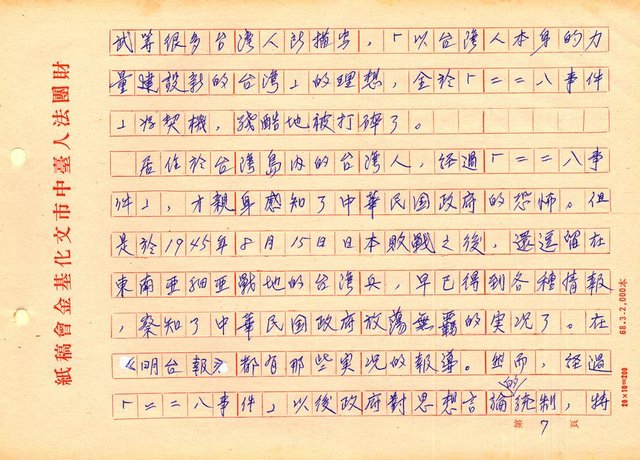 試等很多台灣人所描出，「以台灣人本身的力
量建設新的台灣」的理想，全於「二二八事件
」為契機，殘酷地被打碎了。
居住於台灣島內的台灣人，經過「二二八事
件」，才親身感知了中華民国政府的恐怖。但
是於1945年8月15日日本敗戰之後，還逗留在
東南亜細亜戰地的台灣兵，早已得到各種情報
，察知了中華民国政府放蕩無羈的実况了。在
《明台報》都有那些実况的報導。然而，經過
「二二八事件」以後政府對思想言論的統制，特
第7頁
財團法人臺中市文化基金會稿紙
68.3.2,000本
20×10=200